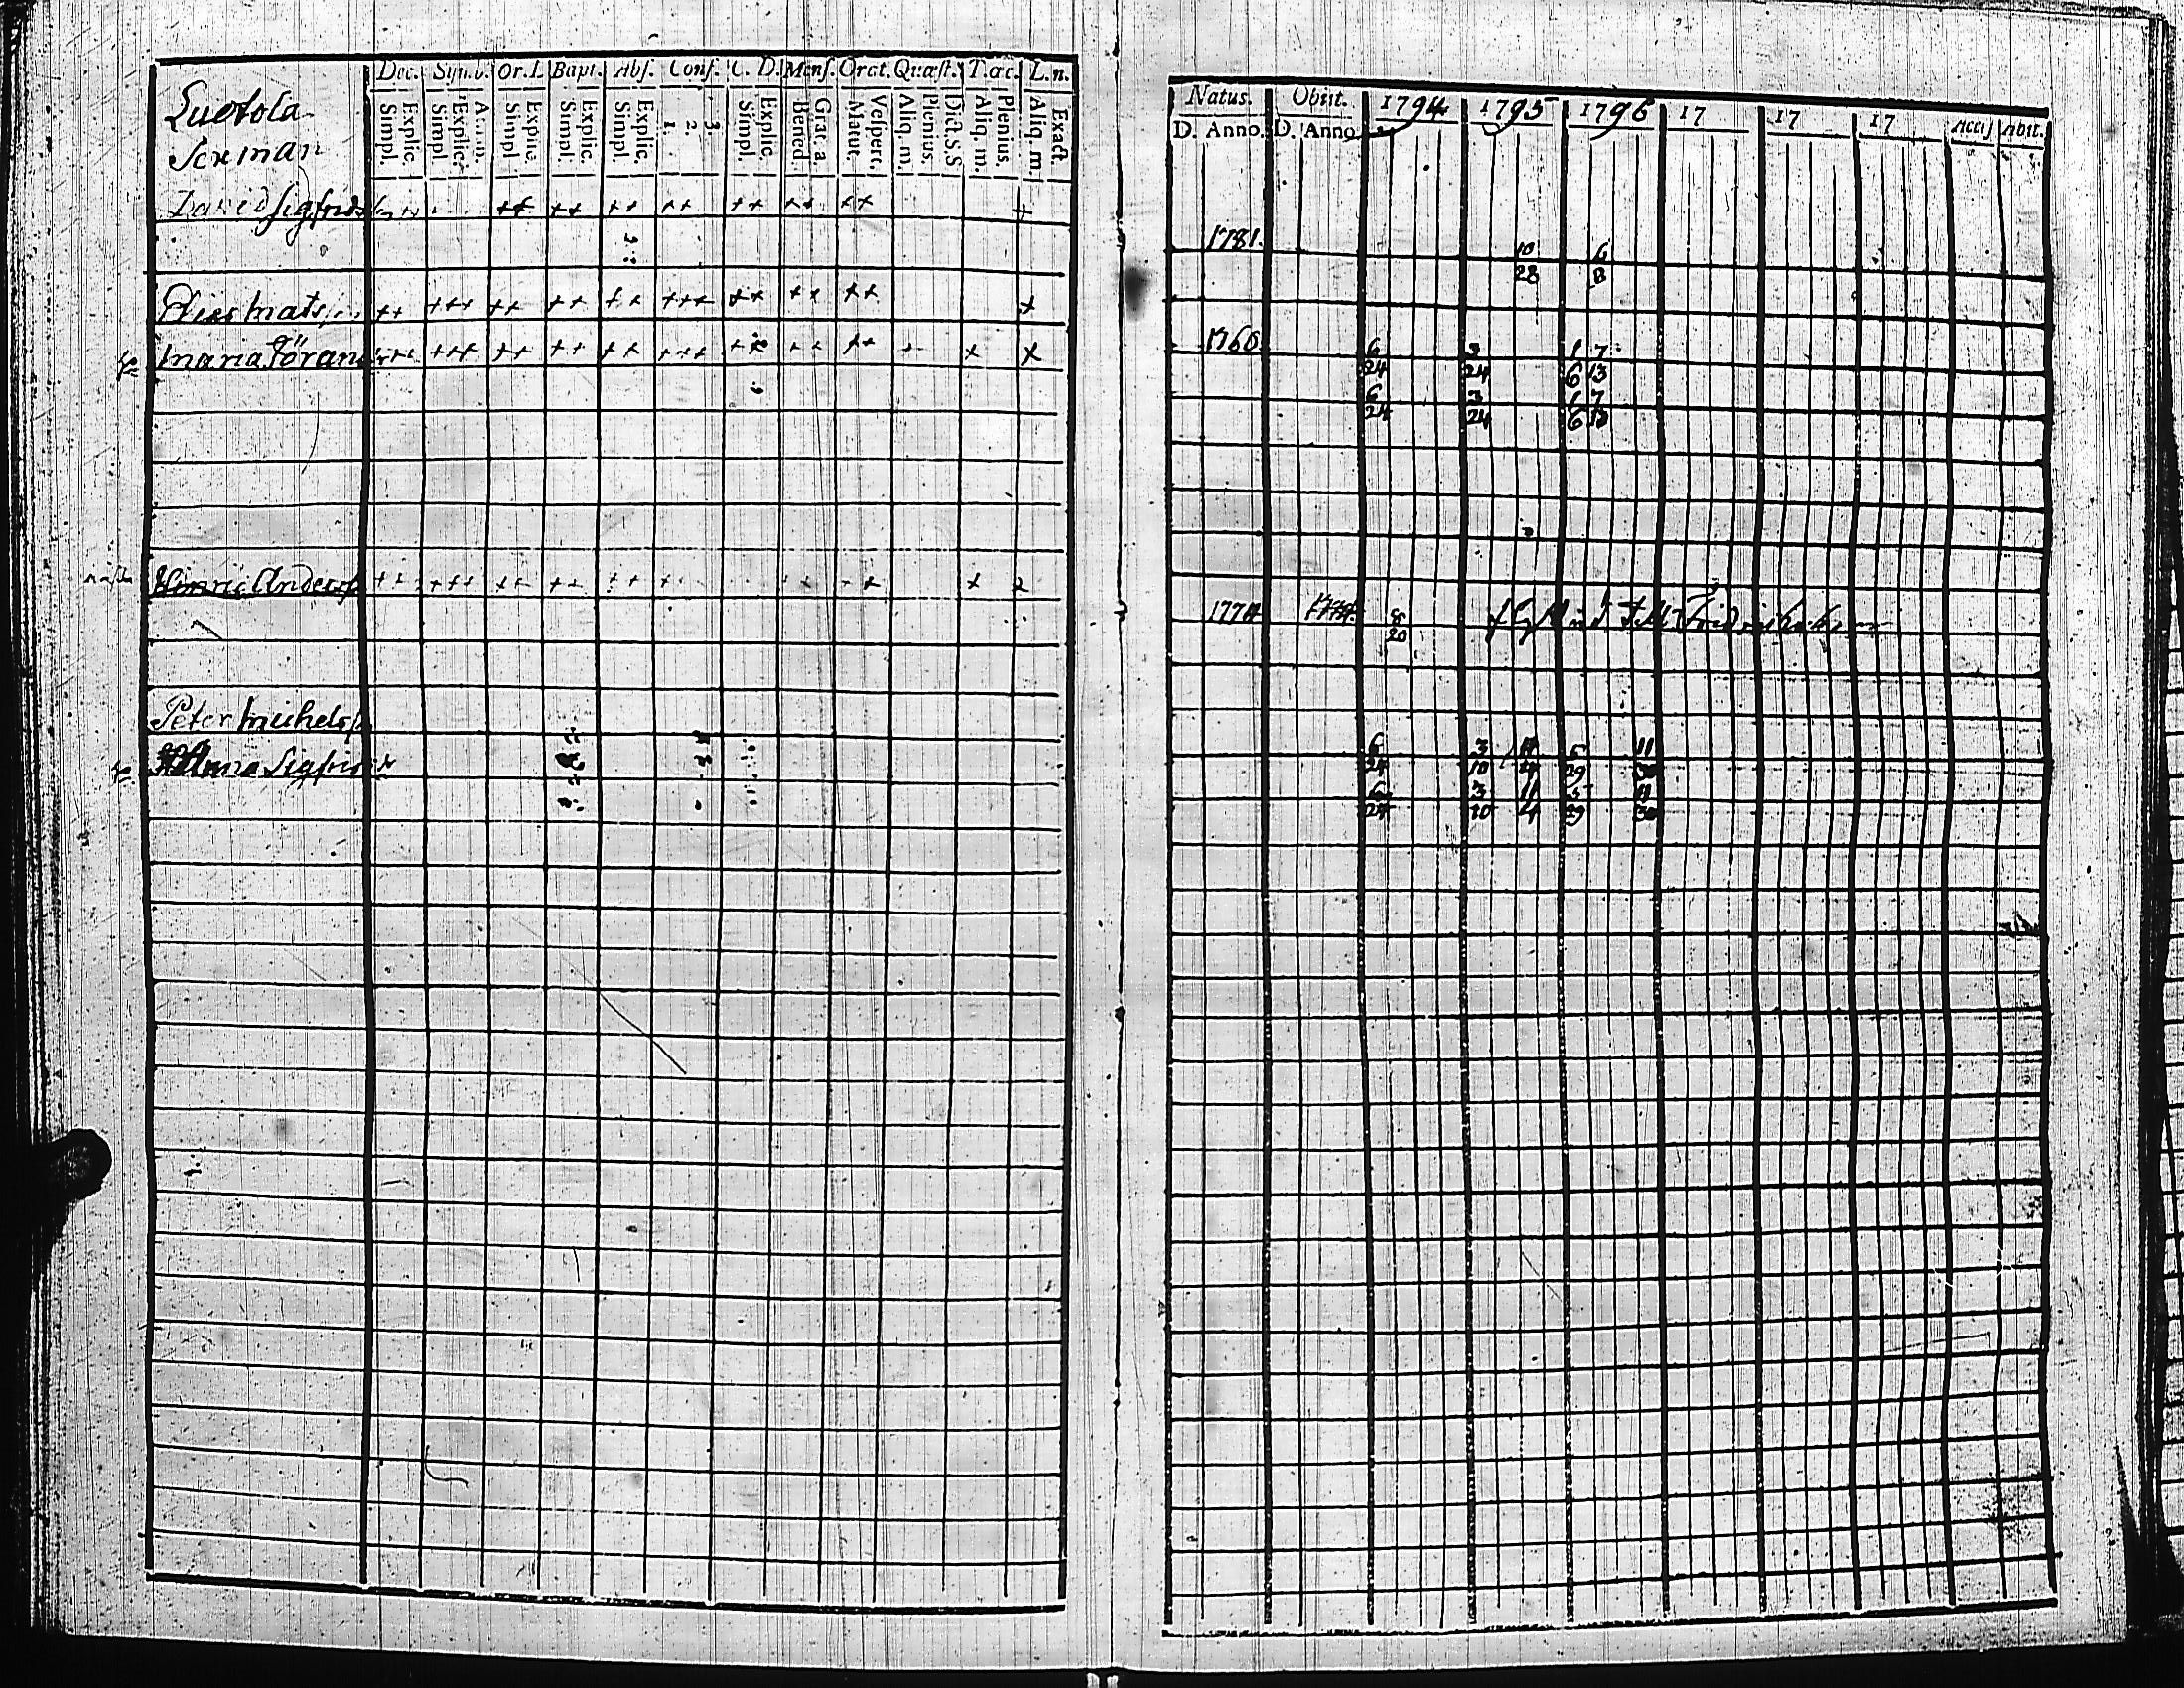 Luotola
Sexman
Dec. Symb. Or.L Bapt. Abs. Conf. C. D. Mens. Orat. Quæst. T.œc. L.n.
Simpl. Explic. Simpl. Explic. Simpl. Explic. Simpl. Explic. Simpl. Explic. 1. 2. 3. Simpl. Explic. Bened. Grat.a. Matut. Vesper. Aliq.m. Plenius. Dict.S.S Aliq.m. Plenius. Aliq.m. Exact.
David Sigfrids
Elias Matss
Maria Jöran
Hinric Anderss
Peter Michelss
Sigfrids
Natus. Obiit. 1794 1795 1796 17 17 17 Acces Abit.
D. Anno. D. Anno
1781. 10 6
28 8
1766. 6 3 1 7
24 24 6 13
6 3 1 7
24 24 6 13
1774 8
20
6 3 11 5 11
24 10 4 29 30
6 3 11 5 11
24 10 4 29 30